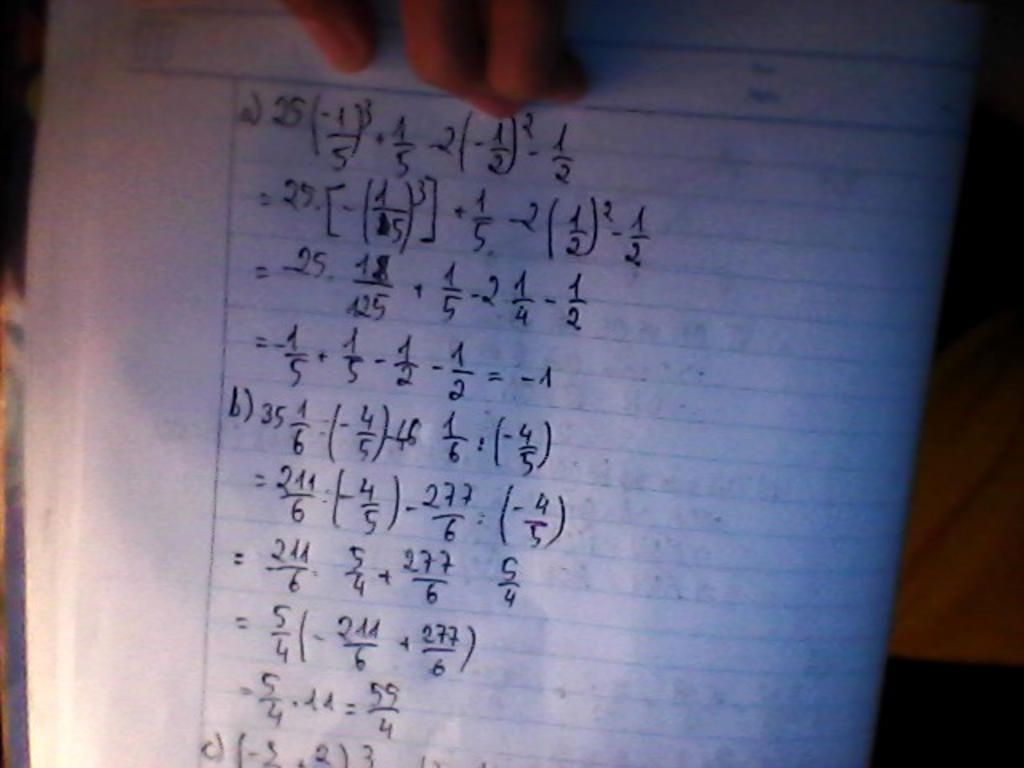 a) 25(-1/5)³ + 1/5 - 2(-1/2)² - 1/2
= 25.[-(1/5)³] + 1/5 - 2(1/2)² - 1/2
= -25. 1/125 + 1/5 - 2 1/4 - 1/2
= -1/5 + 1/5 - 1/2 - 1/2 = -1
b) 35 1/6 : (-4/5) - 46 1/6 : (-4/5)
= 211/6 : (-4/5) - 277/6 : (-4/5)
= 211/6 . 5/4 + 277/6 5/4
= 5/4 (-211/6 + 277/6)
= 5/4 . 11 = 55/4
c)